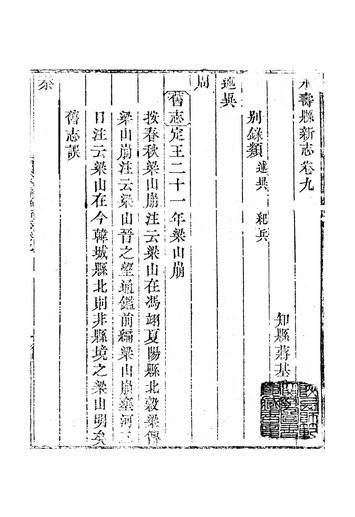 永壽縣新志卷九
知縣蔣基
別錄類 述異 紀兵
述異
周
舊志定王二十一年梁山崩
按春秋梁山崩注云梁山在馮翊夏陽縣北穀梁傳
梁山崩注云梁山晉之望通鑑前編梁山崩壅河三
日注云梁山在今韓城縣北則非縣境之梁山明矣
舊志誤
秦